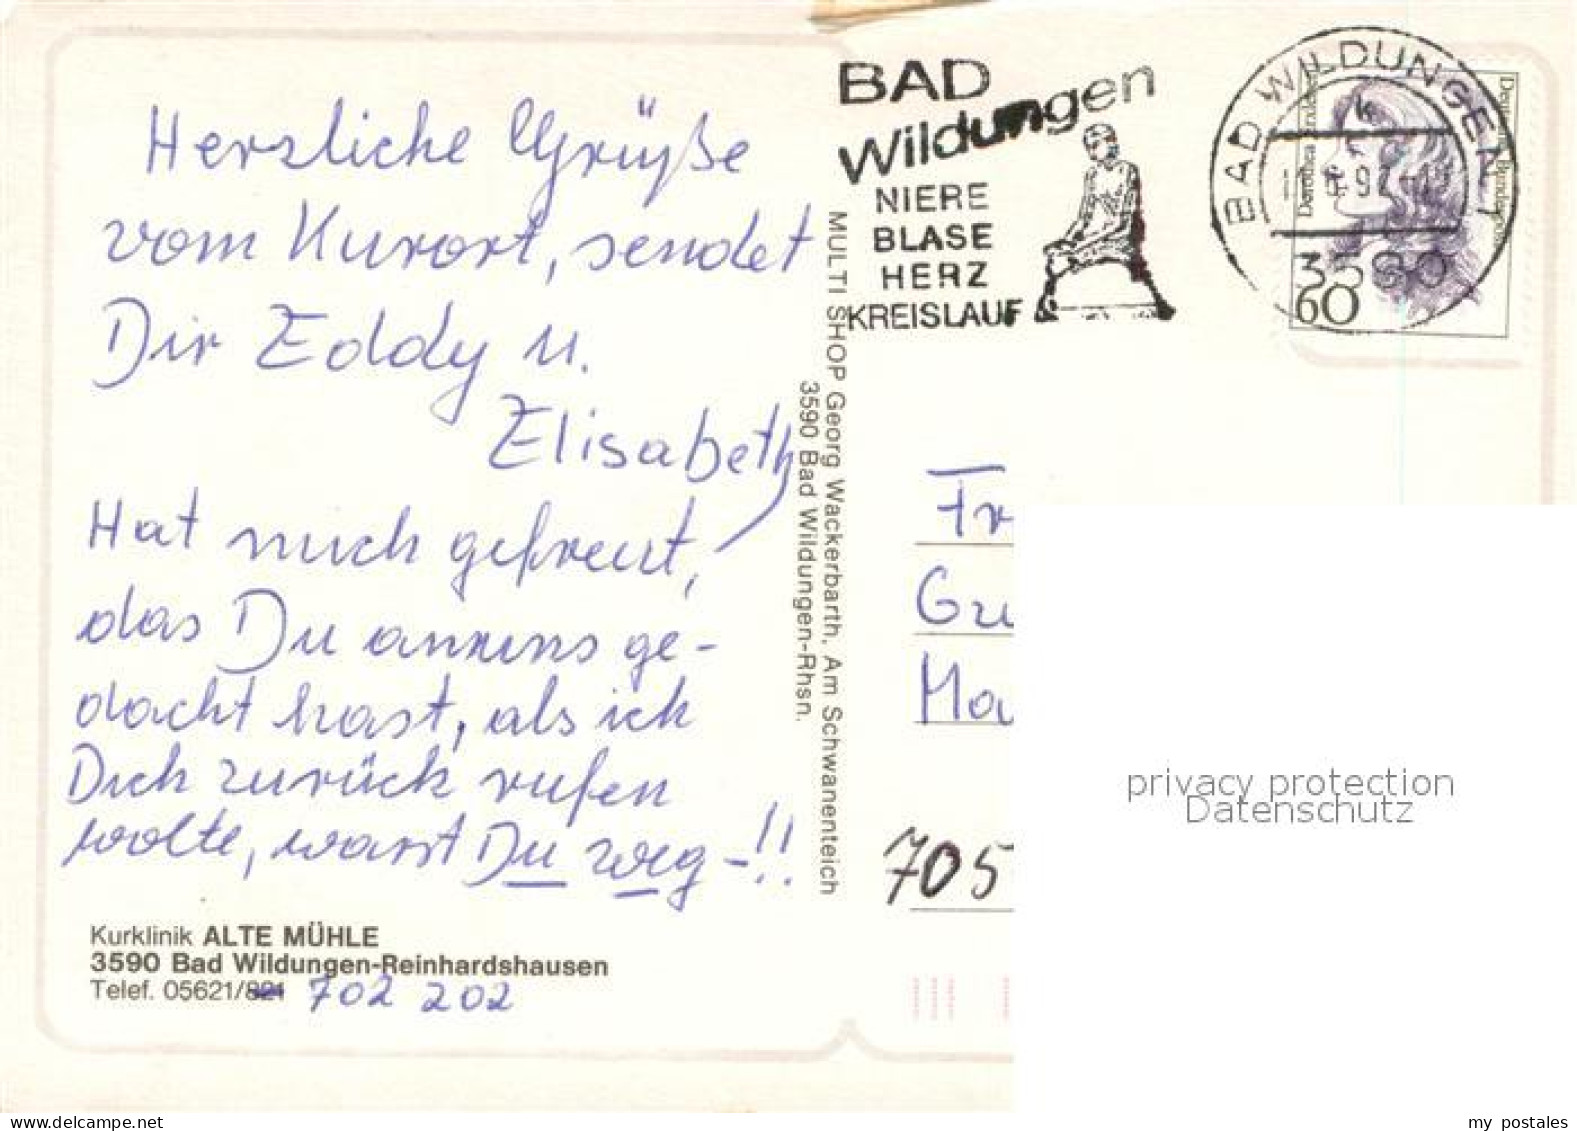 Herzliche Grüße
vom Kurort, sendet
Dir Eddy u.
Elisabeth
Hat mich gefreut,
das Du an uns ge-
dacht hast, als ich
Dich zurück rufen
wolte, warst Du weg -!!
Kurklinik ALTE MÜHLE
3590 Bad Wildungen-Reinhardshausen
Telef. 05621/821 702 202
MULTI SHOP Georg Wackerbarth, Am Schwanenteich
3590 Bad Wildungen-Rhsn.
BAD
Wildungen
NIERE
BLASE
HERZ
KREISLAUF
BAD WILDUNGEN 1
3590
60
Fr
Gu
Ma
705
privacy protection
Datenschutz
my postales
www.delcampe.net